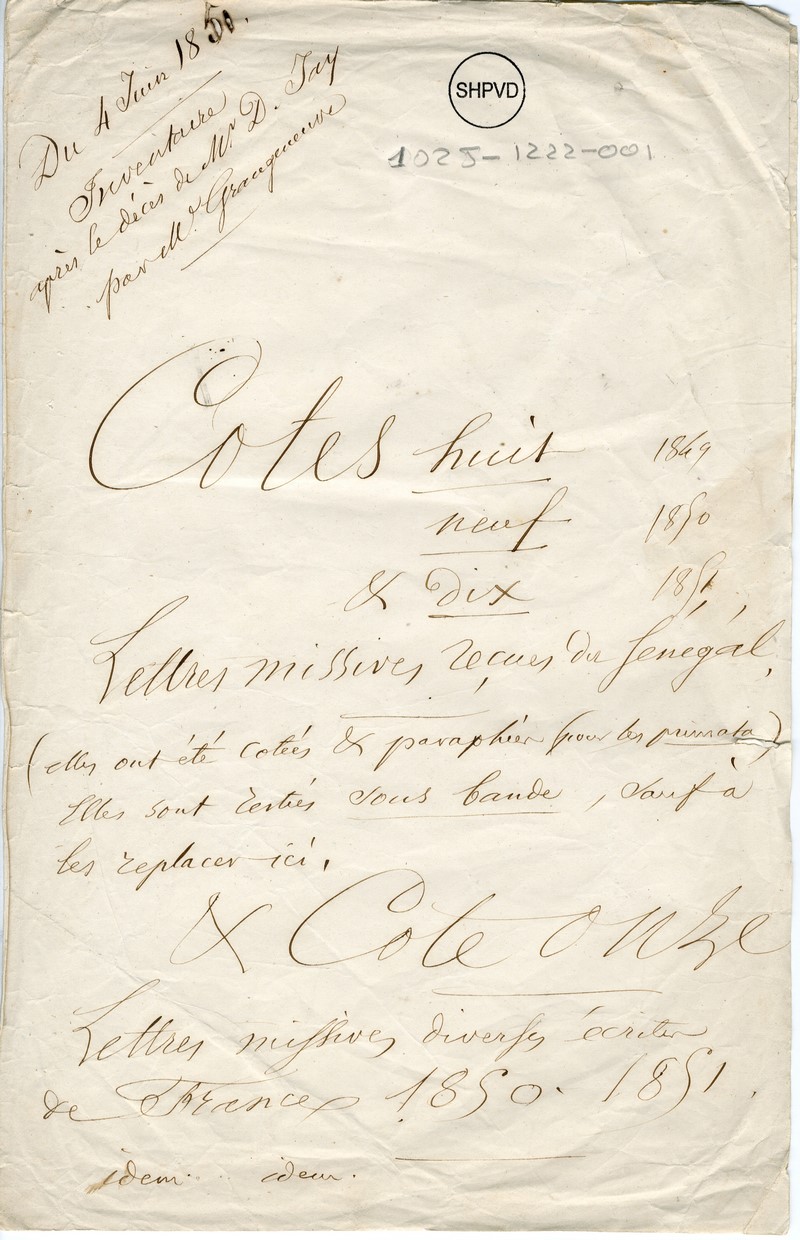 Du 4 Juin 1850.
Inventaire
après le décès de Mr D. Jay
par Me Grangneuve
SHPVD
1025-1222-001
Cotes huit 1849
neuf 1850
& dix 1851
Lettres missives reçues du Sénégal,
(elles ont été cotées & paraphées (pour les primata)
Elles sont restées sous bande, sauf à
les replacer ici.
& Cote onze
Lettres missives diverses écrites
de France 1850. 1851.
idem. idem.